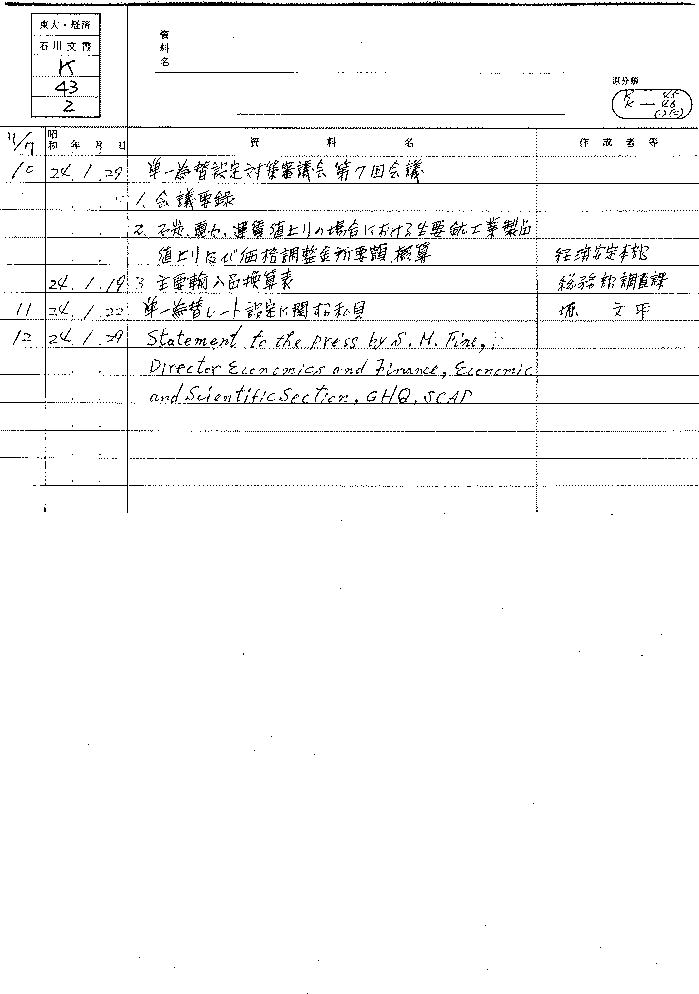 東大・経済
石川文書
K
43
2
資料名
原分類
K — 45
K — 46
(2)
昭和 年 月 日 資料名 作成者等
10 24.1.29 単一為替設定対策審議会第7回会議
1. 会議要録
2. 石炭、電力、運賃値上りの場合における主要鉱工業製品
値上り及び価格調整金所要額概算 経済安定本部
24.1.19 3. 主要輸入品換算表 総務部調査課
11 24.1.22 単一為替レート設定に関する私見 堀 文平
12 24.1.29 Statement to the press by S. M. Fine,
Director Economics and Finance, Economic
and Scientific Section, GHQ, SCAP